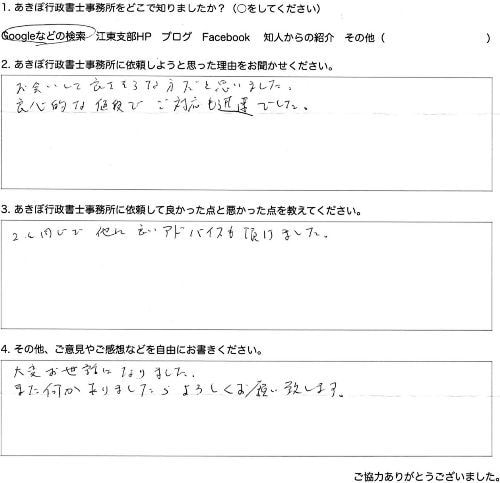 1. あきぼ行政書士事務所をどこで知りましたか？（○をしてください）
Googleなどの検索　江東支部HP　ブログ　Facebook　知人からの紹介　その他（　　　　　　　　）
2. あきぼ行政書士事務所に依頼しようと思った理由をお聞かせください。
お会いして良さそうな方だと思いました。
良心的な値段で ご対応も迅速でした。
3. あきぼ行政書士事務所に依頼して良かった点と悪かった点を教えてください。
2と同じで 他に 良いアドバイスも頂けました。
4. その他、ご意見やご感想などを自由にお書きください。
大変お世話になりました。
また何かありましたら よろしくお願い致します。
ご協力ありがとうございました。